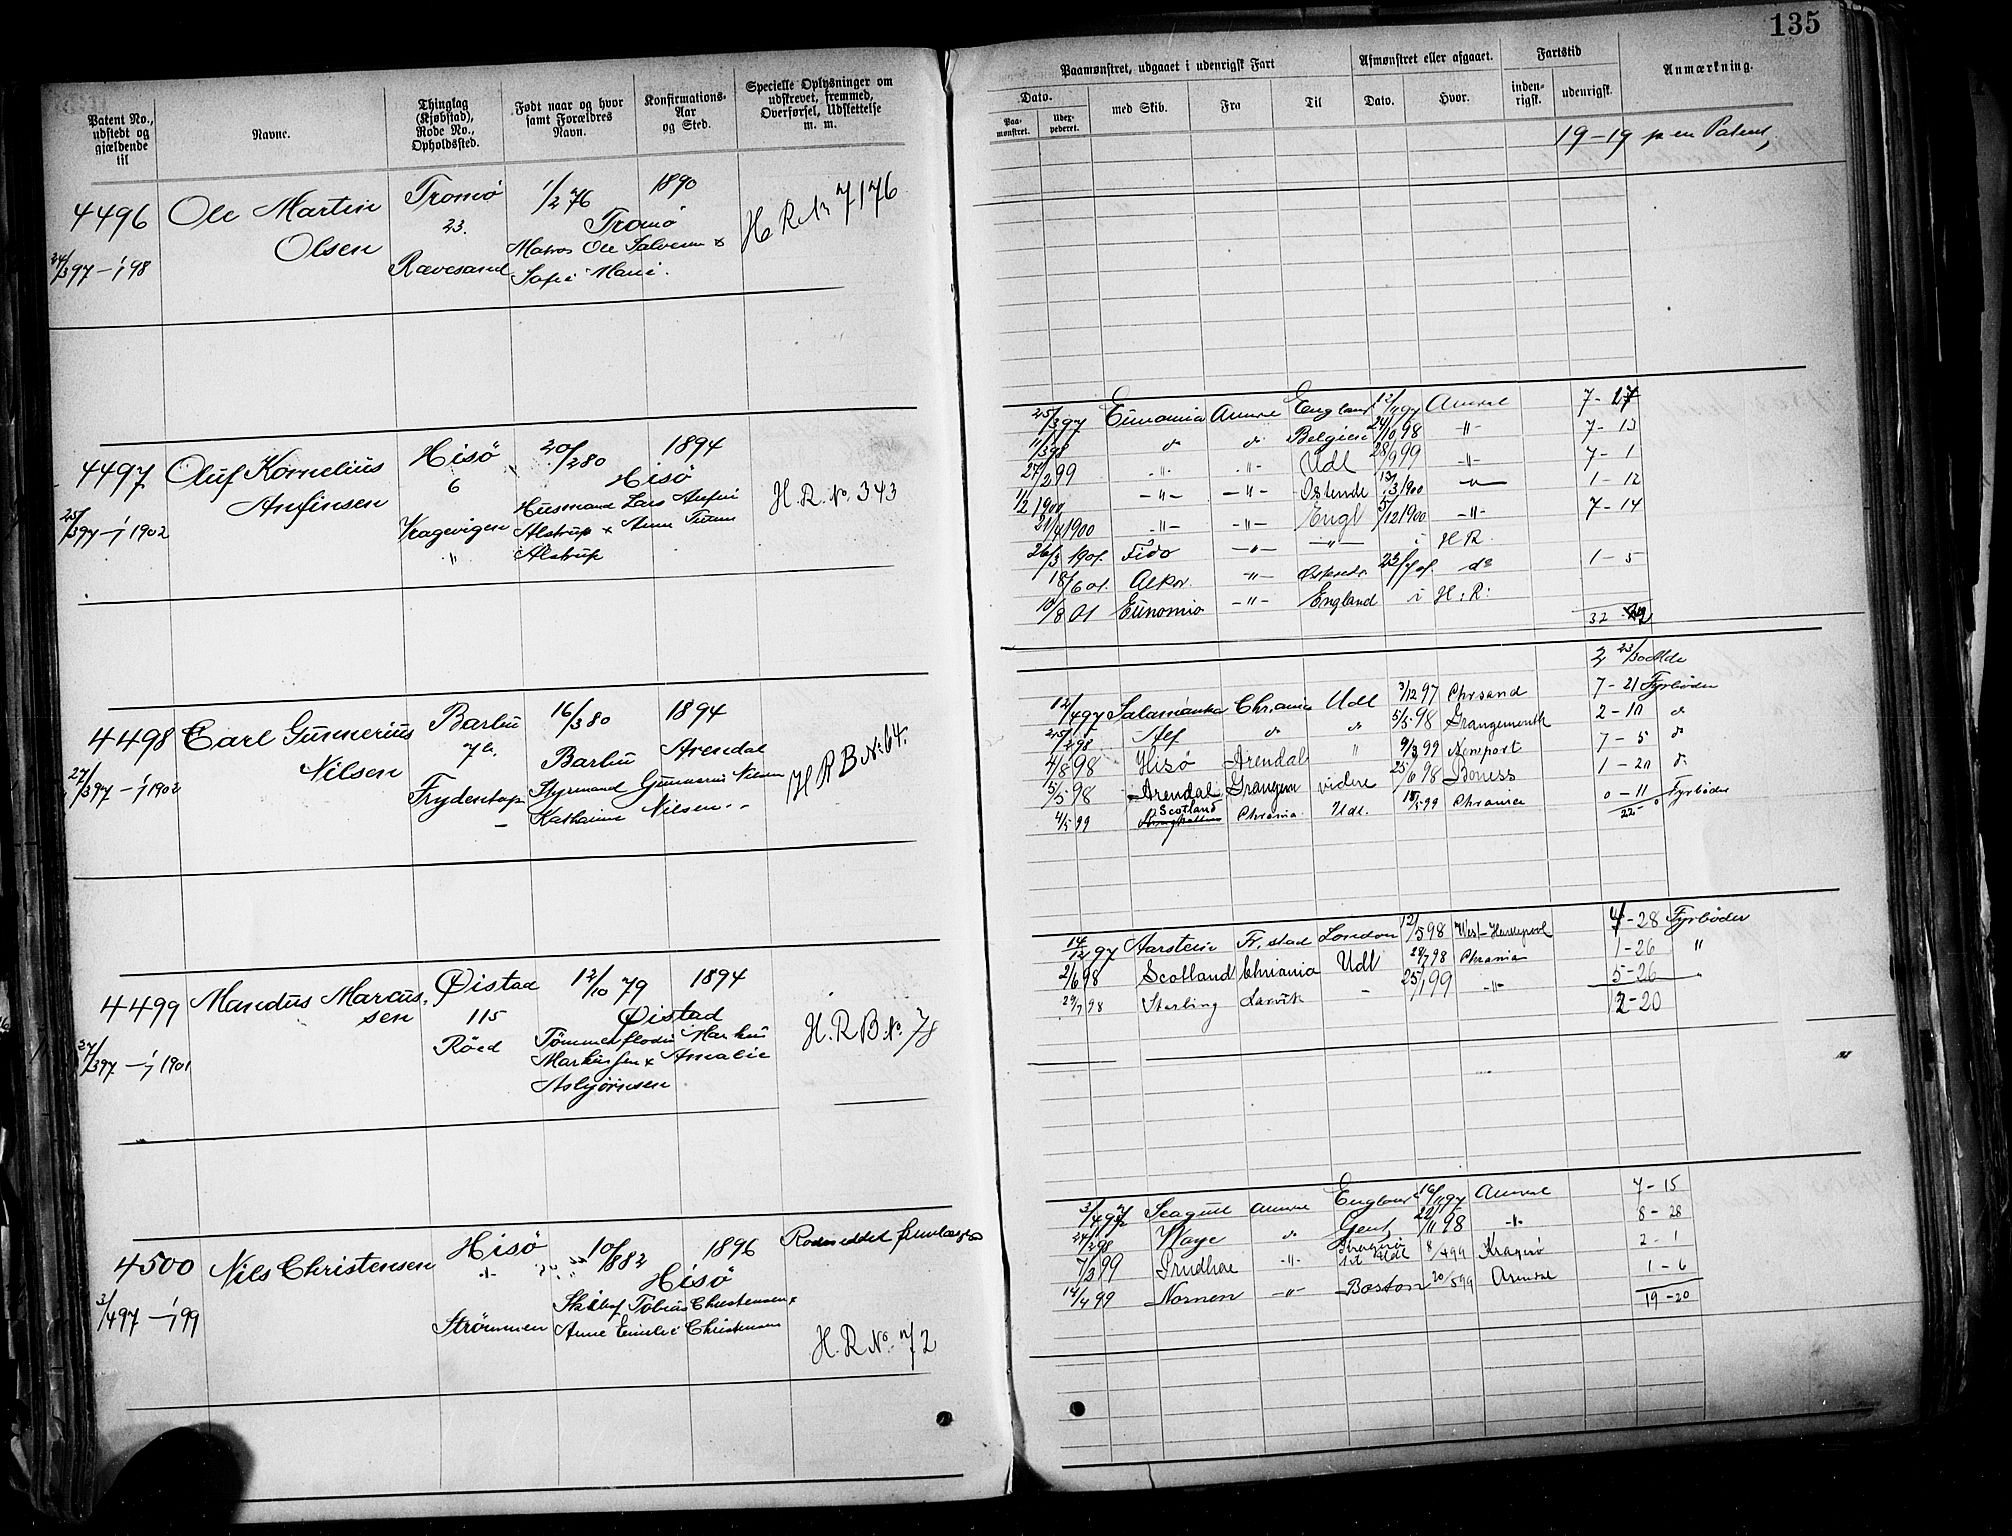 135
Patent No., udstedt og gjældende til
Navne.
Thinglag (Kjøbstad), Rode No., Opholdssted.
Født naar og hvor samt Forældres Navn.
Konfirmations-Aar og Sted.
Specielle Oplysninger om udskrevet, fremmed, Overførsel, Udslettelse m. m.
Paamønstret, udgaaet i udenrigsk Fart
Dato.
Paa-mønstret.
Udex-pederet.
med Skib.
Fra
Til
Afmønstret eller afgaaet.
Dato.
Hvor.
Fartstid
inden-rigsk.
udenrigsk.
Anmærkning.
19-19 p en Patent,
4496 Ole Martin Tromø 1/2 76 1890
Olsen 23. Tromø H R No 7176
24/3 97 - 1/1 98 Ravesand Matros Ole Salvesen &
Sofie Marie.
4497 Oluf Kornelius Hisø 20/2 80 1894
Anfinsen 6 Hisø
25/3 97 - 1/1 1902 Kragevigen Husmand Lars Anfin H. R. No. 343
" Alstrup & Anne
Alstrup
25/3 97 Eunomia England 12/11 97 7-17
11/3 98 d d Belgien 24/10 98 -"- 7-13
27/2 99 -"- -"- Udl 28/9 99 -"- 7-1
1/2 1900 -"- -"- Ostende 13/3 1900 -"- 1-12
21/4 1900 -"- -"- Engl 5/12 1900 -"- 7-14
26/3 1901. Fido -"- -"- i H R.
18/6 01. Alkor. -"- 23/7 01. do 1-5
10/8 01 Eunomia -"- England i H. R.
32
4498 Carl Gunnerius Barbu 16/3 80 1894
Nilsen 7b. Barbu Arendal H R B No 64.
27/3 97 - 1/1 1902 Frydenlap Styrmand Gunnerius Nilsen
- Kathrine Nilsen
2 23/30 Mdr
12/4 97 Salamanka Chr.ania Udl 3/12 97 Chrsand 7-21 Fyrbøder
25/2 98 Alf d d 5/5 98 Grangemouth 2-10 d
4/8 98 Hisø Arendal " 9/3 99 Newport 7-5 d
5/5 98 Arendal Grangem videre 25/6 98 Boness 1-20 d
4/5 99 Scotland Chrania. Udl. 15/5 99 Chrania 0-11 Fyrbøder
22-0
4499 Mandus Marcus- Øistad 12/10 79 1894
sen 115 Øistad H. R B No. 78
27/3 97 - 1/1 1901 Røed Tømmerfløder Markus
Markussen & Amalie
Asbjørnsen
14/12 97 Aarstein Fr.stad London 12/5 98 West-Hartlepool 4-28 Fyrbøder
2/6 98 Scotland Chriania Udl 28/7 98 Chrania 1-26 "
29/7 98 Sterling Larvik - 25/1 99 -"- 5-26
12-20
4500 Nils Christensen Hisø 10/8 82 1896
Hisø
3/4 97 - 1/1 99 Strømmen Tobias Christensen &
Anne Emilie Christensen
H. R No. 72
3/4 97 Seagull England 16/11 97 7-15
24/2 98 d Gent, 22/11 98 -"- 8-28
7/2 99 Prudhoe -"- Udl 8/4 99 Kragerø 2-1
14/4 99 Nornen -"- Boston 20/5 99 Arendal 1-6
19-20